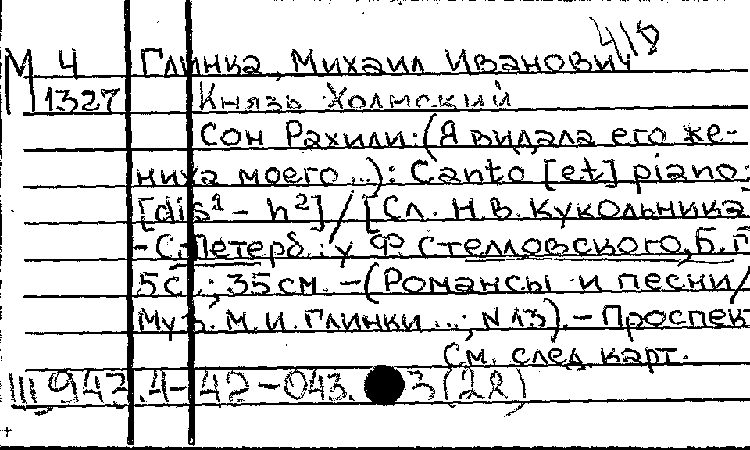 418
М 4 Глинка, Михаил Иванович
1327 Князь Холмский
Сон Рахили: (Я видала его же-
ниха моего...): Canto [et] piano:
[dis¹ - h²] / [Сл. Н.В. Кукольника
- С.Петерб.: у Ф. Стелловского, Б.г
5с.; 35см. - (Романсы и песни /
Муз. М.И. Глинки ...; N 13). - Проспек
См. след карт.
III 943.4-42-043. 3(2R)